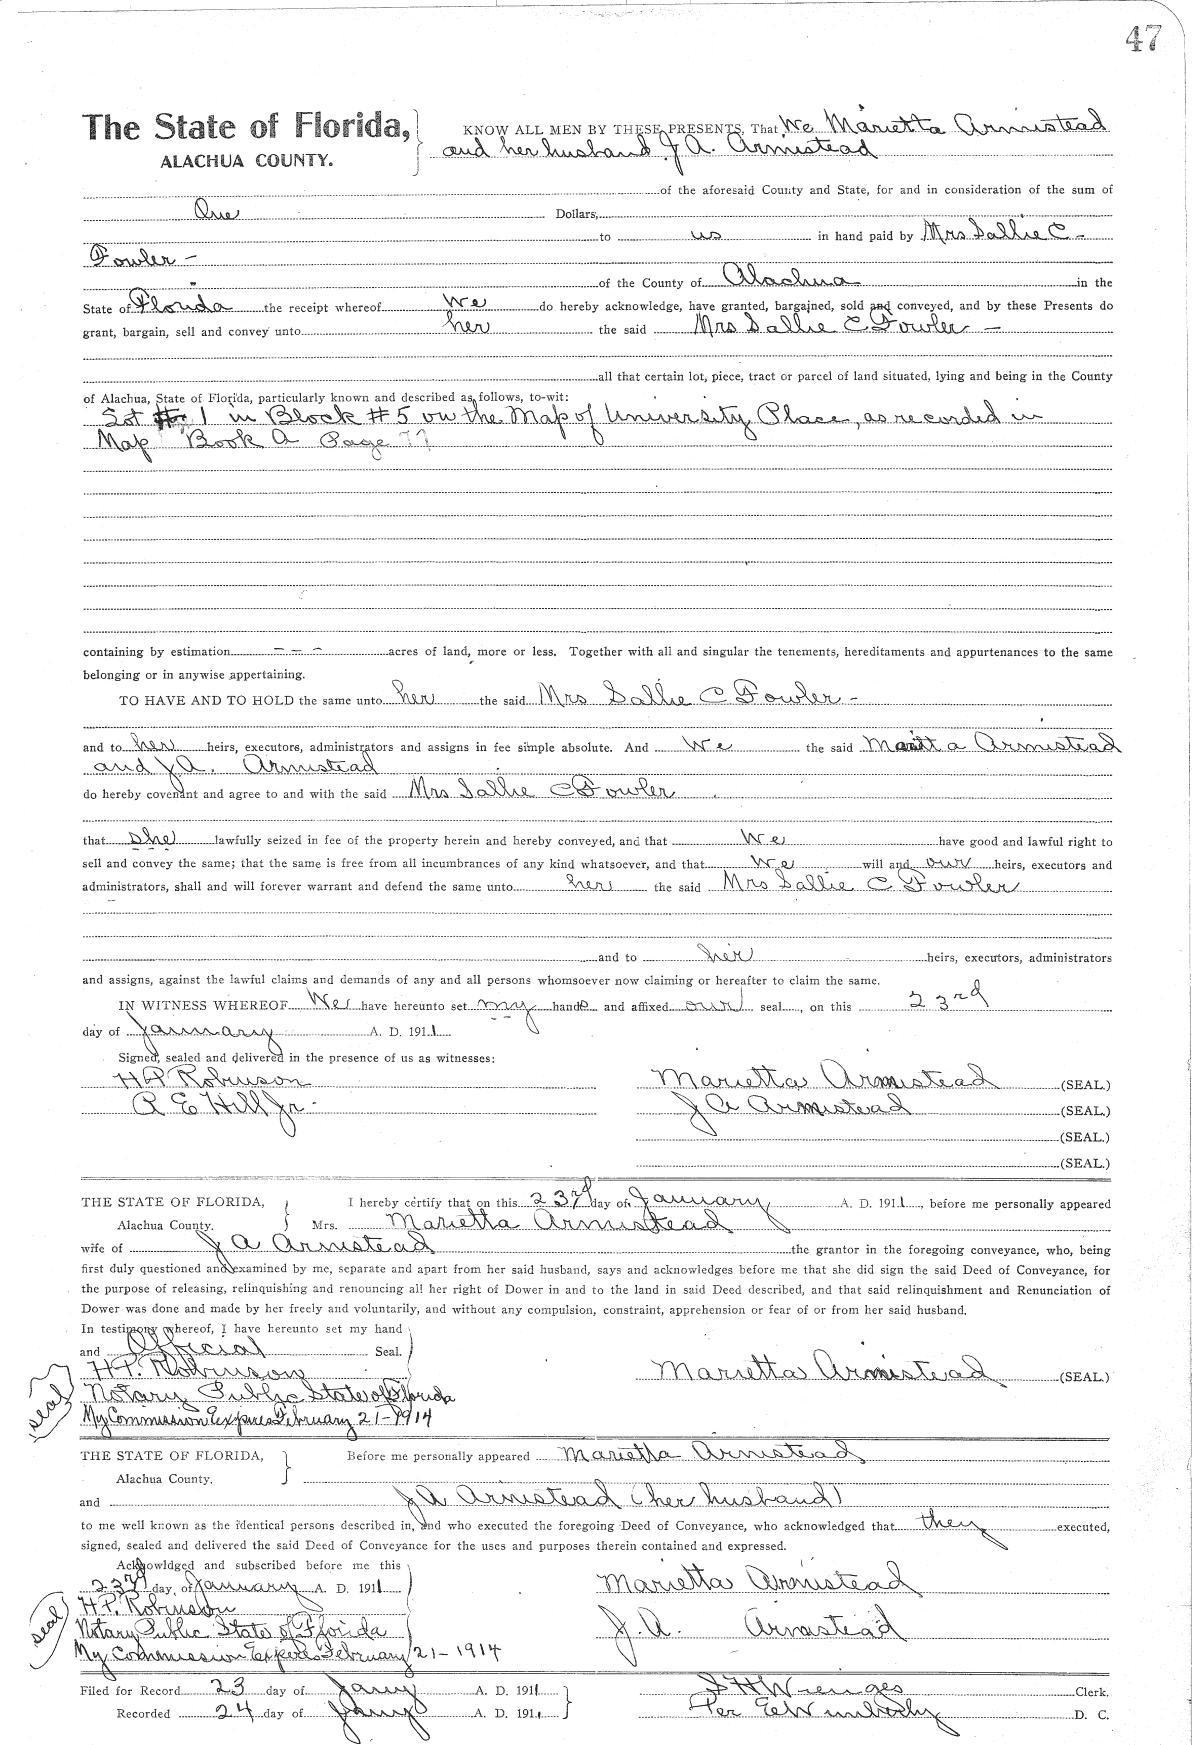 47
The State of Florida,
ALACHUA COUNTY.
KNOW ALL MEN BY THESE PRESENTS, That We Marietta Armistead
and her husband J A. Armistead
of the aforesaid County and State, for and in consideration of the sum of
One Dollars,
to us in hand paid by Mrs Sallie C -
Fowler -
of the County of Alachua in the
State of Florida the receipt whereof We do hereby acknowledge, have granted, bargained, sold and conveyed, and by these Presents do
grant, bargain, sell and convey unto her the said Mrs Sallie C Fowler -
all that certain lot, piece, tract or parcel of land situated, lying and being in the County
of Alachua, State of Florida, particularly known and described as follows, to-wit:
Lot 1 in Block # 5 on the Map of University Place, as recorded in
Map Book A Page 77
containing by estimation - - - acres of land, more or less. Together with all and singular the tenements, hereditaments and appurtenances to the same
belonging or in anywise appertaining.
TO HAVE AND TO HOLD the same unto her the said Mrs Sallie C Fowler -
and to her heirs, executors, administrators and assigns in fee simple absolute. And We the said Marietta Armistead
and J A. Armistead
do hereby covenant and agree to and with the said Mrs Sallie C Fowler
that she lawfully seized in fee of the property herein and hereby conveyed, and that We have good and lawful right to
sell and convey the same; that the same is free from all incumbrances of any kind whatsoever, and that We will and our heirs, executors and
administrators, shall and will forever warrant and defend the same unto her the said Mrs Sallie C Fowler
and to her heirs, executors, administrators
and assigns, against the lawful claims and demands of any and all persons whomsoever now claiming or hereafter to claim the same.
IN WITNESS WHEREOF We have hereunto set my hands and affixed our seal, on this 23rd
day of January A. D. 1911
Signed, sealed and delivered in the presence of us as witnesses:
H P Robinson Marietta Armistead (SEAL.)
R E Hill Jr. J A Armistead (SEAL.)
(SEAL.)
(SEAL.)
THE STATE OF FLORIDA, I hereby certify that on this 23rd day of January A. D. 1911, before me personally appeared
Alachua County. Mrs. Marietta Armistead
wife of J A Armistead the grantor in the foregoing conveyance, who, being
first duly questioned and examined by me, separate and apart from her said husband, says and acknowledges before me that she did sign the said Deed of Conveyance, for
the purpose of releasing, relinquishing and renouncing all her right of Dower in and to the land in said Deed described, and that said relinquishment and Renunciation of
Dower was done and made by her freely and voluntarily, and without any compulsion, constraint, apprehension or fear of or from her said husband.
In testimony whereof, I have hereunto set my hand
and Official Seal.
H P. Robinson Marietta Armistead (SEAL)
seal Notary Public State of Florida
My Commission Expires February 21-1914
THE STATE OF FLORIDA, Before me personally appeared Marietta Armistead
Alachua County.
and J A Armistead (her husband)
to me well known as the identical persons described in, and who executed the foregoing Deed of Conveyance, who acknowledged that they executed,
signed, sealed and delivered the said Deed of Conveyance for the uses and purposes therein contained and expressed.
Acknowldged and subscribed before me this
23rd day of January A. D. 1911 Marietta Armistead
H P. Robinson
seal Notary Public State of Florida J. A. Armistead
My Commission Expires February 21-1914
Filed for Record 23 day of Jany A. D. 1911 S H Wienges Clerk.
Recorded 24 day of Jany A. D. 1911 Per E W Wimberly D. C.